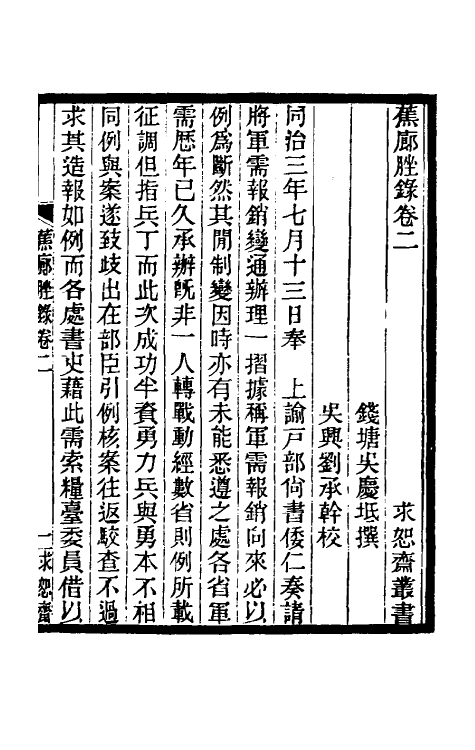 蕉廊脞錄卷二
求恕齋叢書
錢塘吳慶坻撰
吳興劉承幹校
同治三年七月十三日奉　上諭戸部尙書倭仁奏請
將軍需報銷變通辦理一摺據稱軍需報銷向來必以
例爲斷然其閒制變因時亦有未能悉遵之處各省軍
需歷年已久承辦旣非一人轉戰動經數省則例所載
征調但指兵丁而此次成功半資勇力兵與勇本不相
同例與案遂致歧出在部臣引例核案往返駁查不過
求其造報如例而各處書吏藉此需索糧臺委員借以
蕉廊脞錄卷二
一
求恕齋